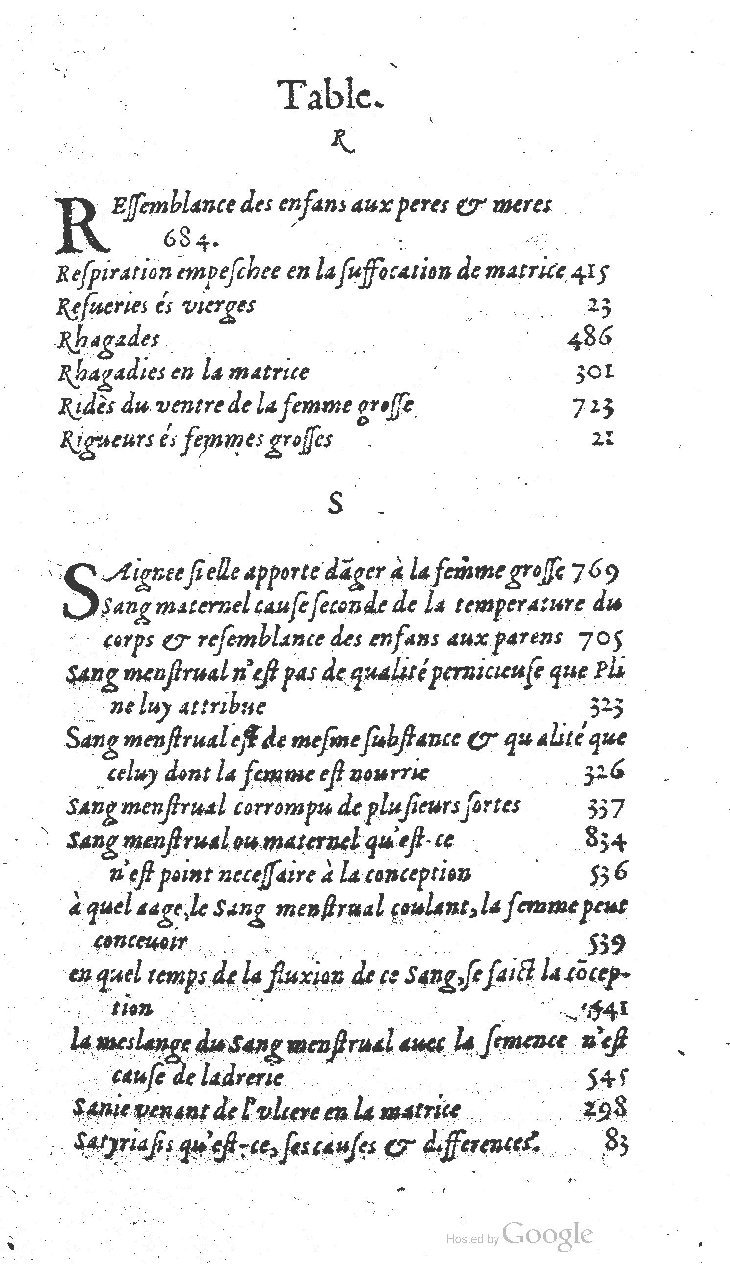 Table.
R
REſſemblance des enfans aux peres & meres
684.
Reſpiration empeſchee en la ſuffocation de matrice 415
Reſueries és vierges 23
Rhagades 486
Rhagadies en la matrice 301
Ridès du ventre de la femme groſſe 723
Rigueurs és femmes groſſes 21
S
SAignee ſi elle apporte dãger à la femme groſſe 769
Sang maternel cauſe ſeconde de la temperature du
corps & reſemblance des enfans aux parens 705
Sang menſtrual n'eſt pas de qualité pernicieuſe que Pli
ne luy attribue 323
Sang menſtrual eſt de meſme ſubſtance & qualité que
celuy dont la femme eſt nourrie 326
Sang menſtrual corrompu de pluſieurs ſortes 337
Sang menſtrual ou maternel qu'eſt-ce 834
n'eſt point neceſſaire à la conception 536
à quel aage, le Sang menſtrual coulant, la femme peut
conceuoir 539
en quel temps de la fluxion de ce Sang, ſe faict la cõcep-
tion 541
la meslange du Sang menſtrual auec la ſemence n'eſt
cauſe de ladrerie 545
Sanie venant de l'vlcere en la matrice 298
Satyriaſis qu'eſt-ce, ſes cauſes & differences. 83
Hosted by Google